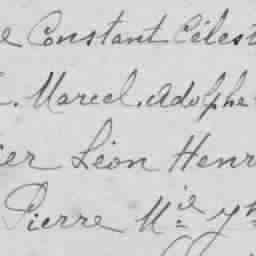 e Constant Célest
. Marcel. Adolphe
ier Léon Henr
Pierre M^ie